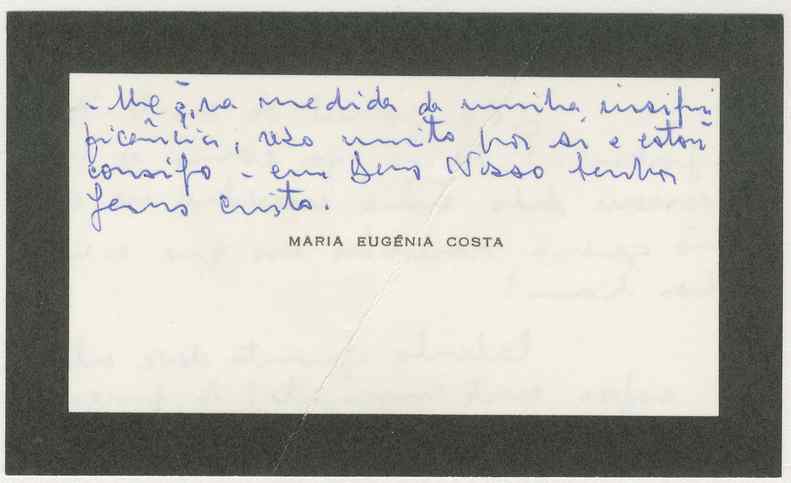 - lhe q, na medida da minha insigni
ficância, rezo muito por si e estou
consigo - em Deus Nosso Senhor
Jesus Cristo.
MARIA EUGÉNIA COSTA